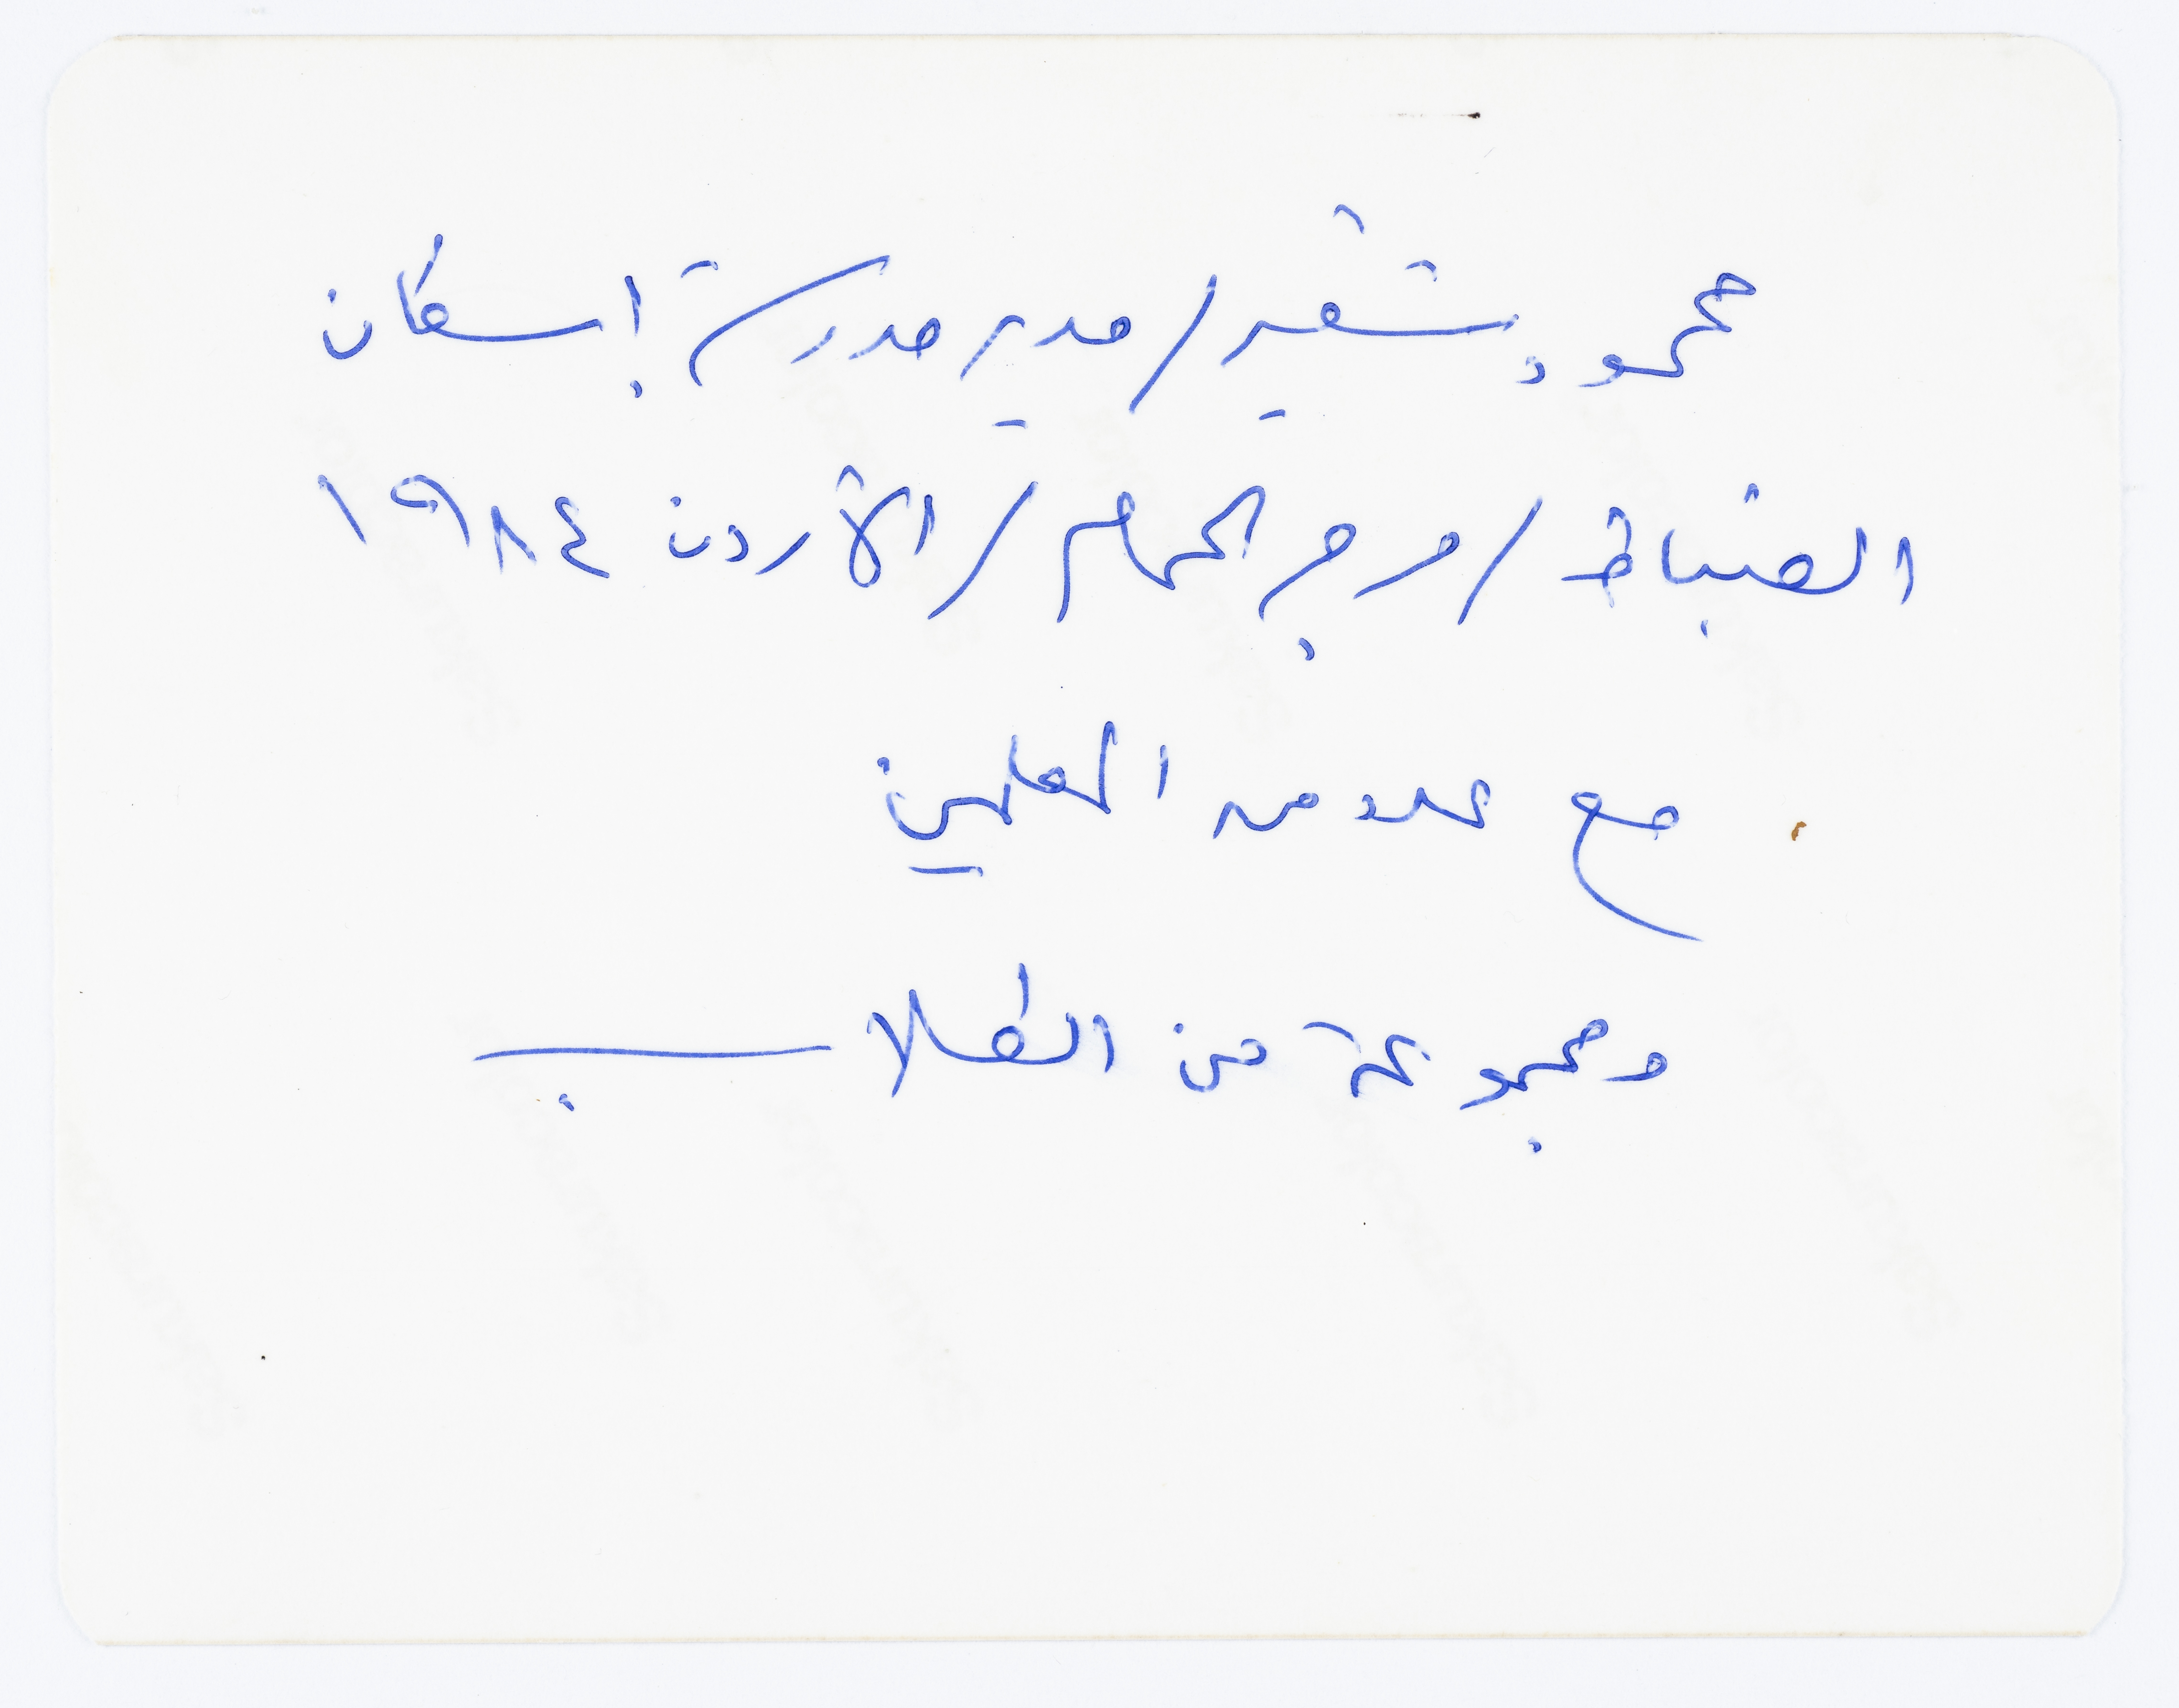 محمود شقير / مدير مدرسة إسكان
الضباط / مرج الحمام / الأردن ١٩٨٤
مع عدد من المعلمين
ومجموعة من الطلاب